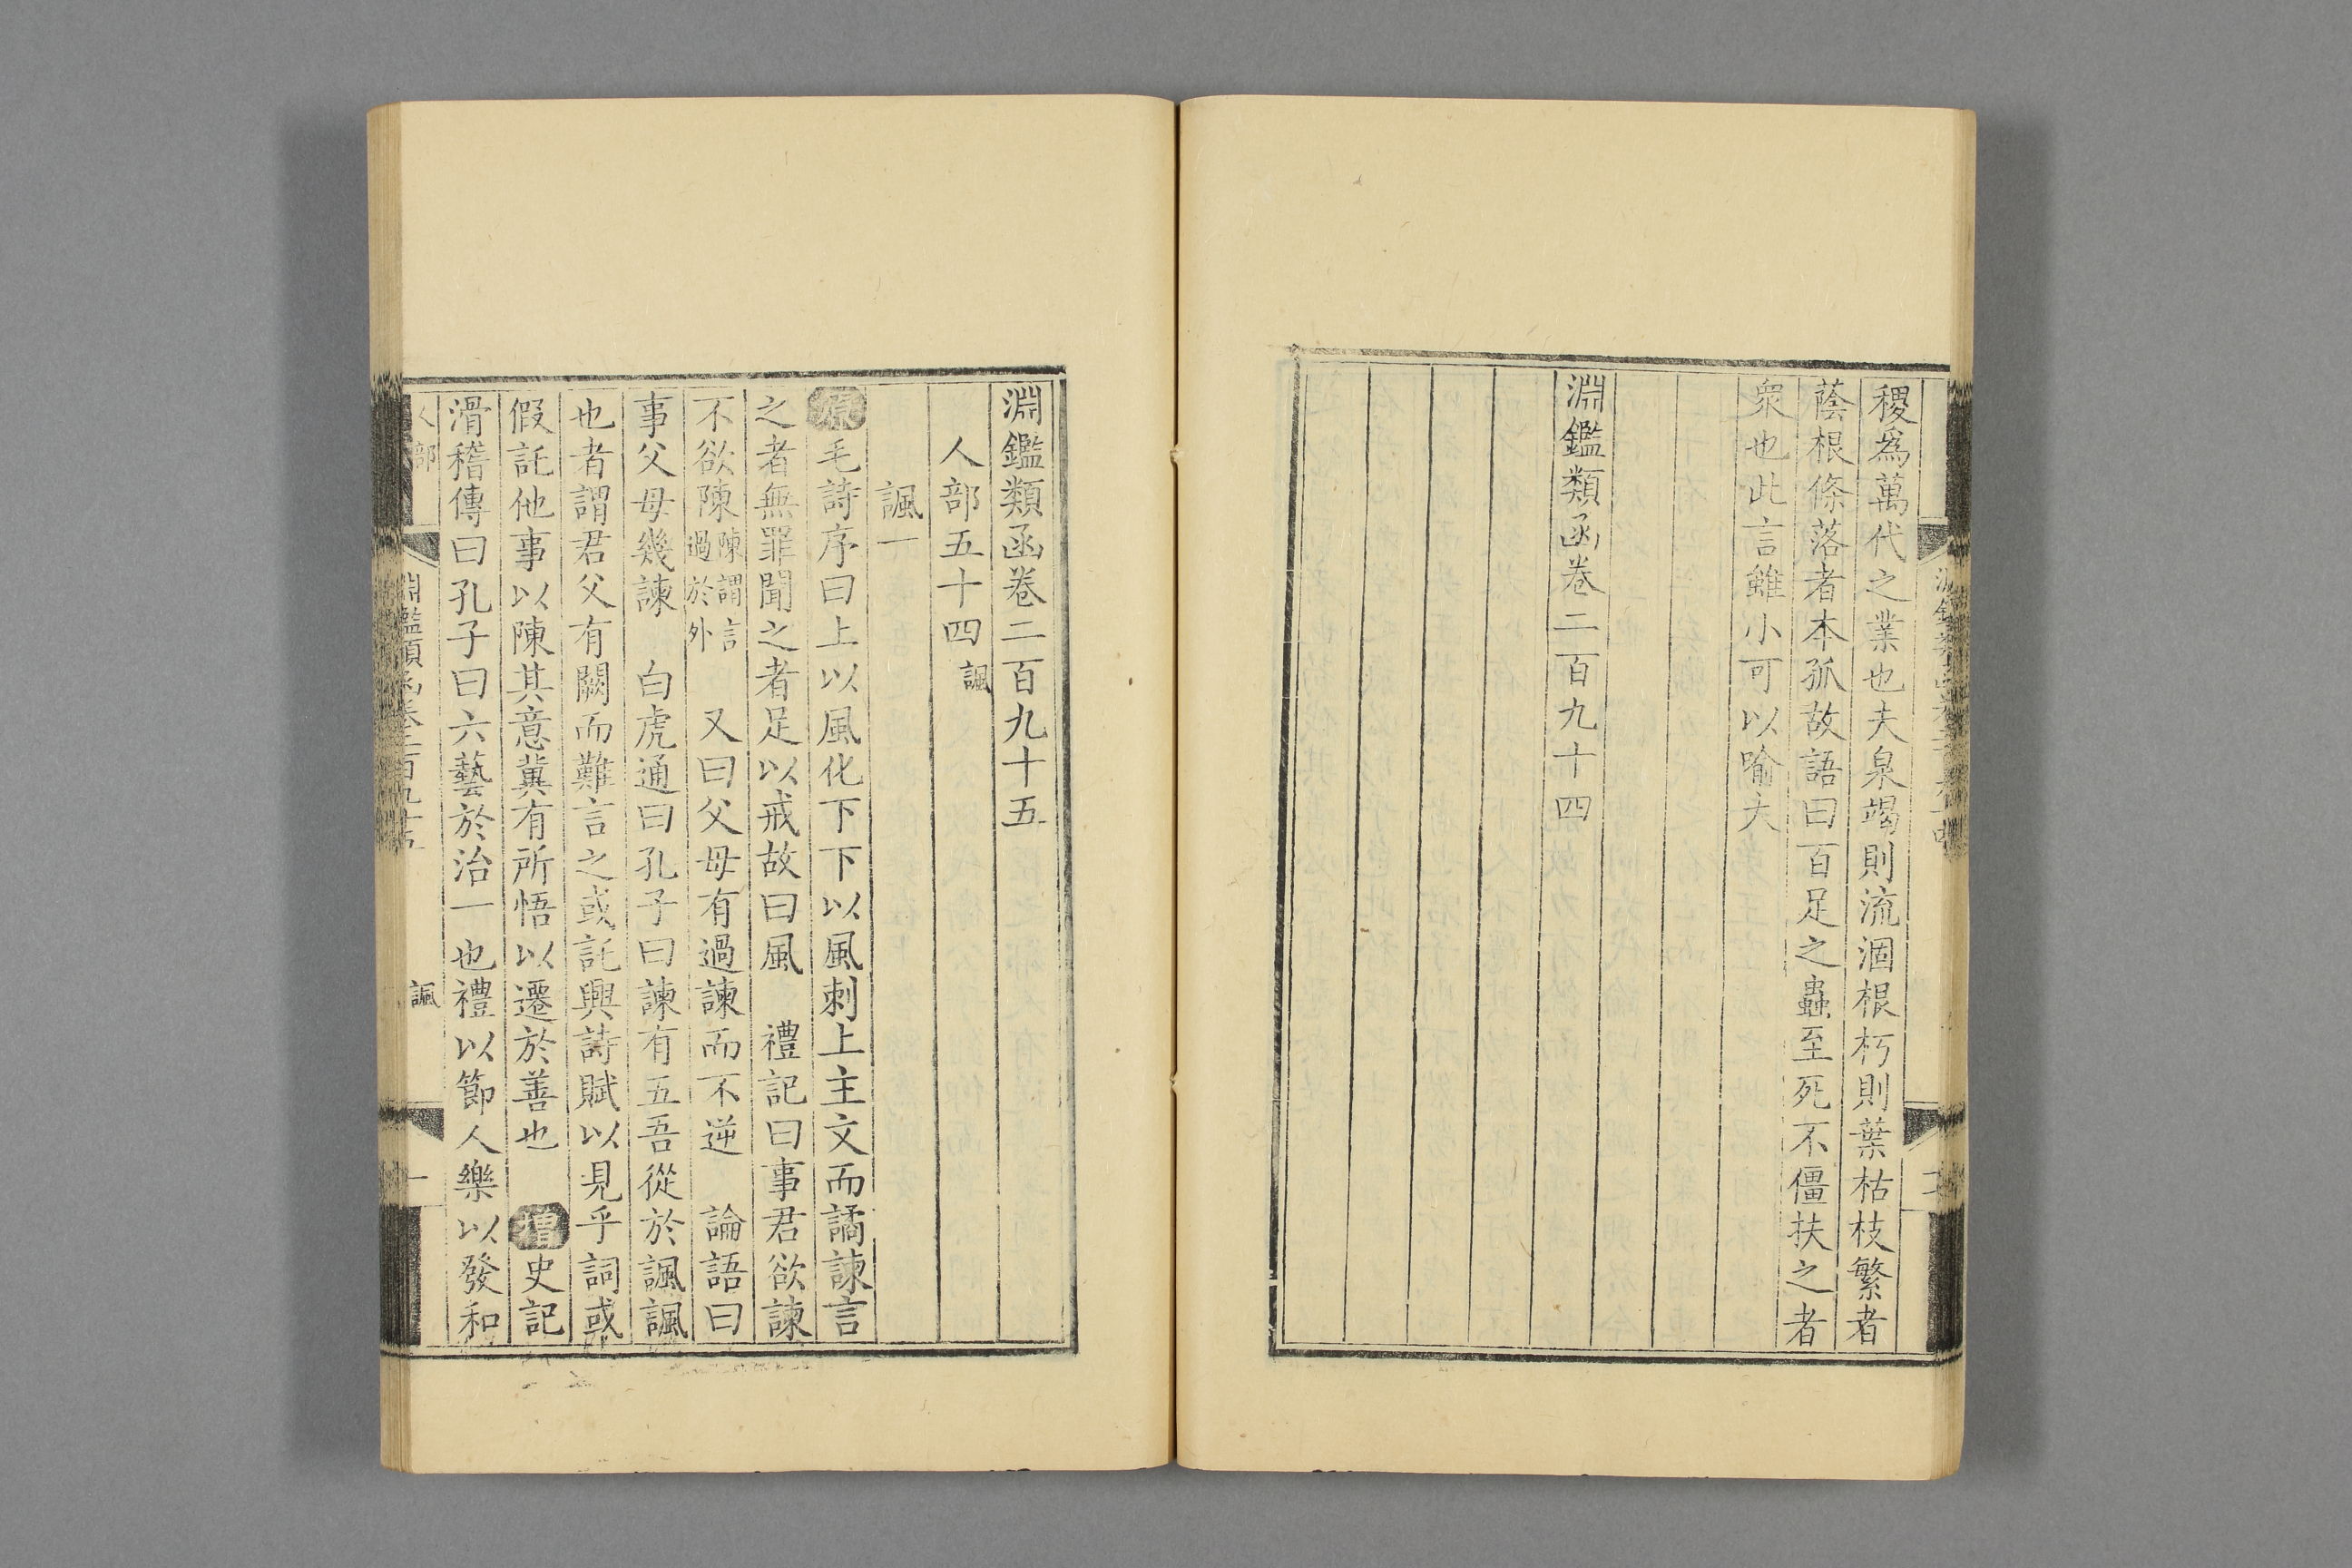 稷爲萬代之業也夫泉竭則流涸根朽則葉枯枝繁者
蔭根條落者本孤故語曰百足之蟲至死不僵扶之者
衆也此言雖小可以喻大
淵鑑類函卷二百九十四
淵鑑類函卷二百九十五
人部五十四諷
諷一
原毛詩序曰上以風化下下以風刺上主文而譎諫言
之者無罪聞之者足以戒故曰風 禮記曰事君欲諫
不欲陳陳謂言過於外 又曰父母有過諫而不逆 論語曰
事父母幾諫 白虎通曰孔子曰諫有五吾從於諷諷
也者謂君父有闕而難言之或託興詩賦以見乎詞或
假託他事以陳其意冀有所悟以遷於善也 增史記
滑稽傳曰孔子曰六藝於治一也禮以節人樂以發和
人部
淵鑑類函卷二百九十五
諷
一